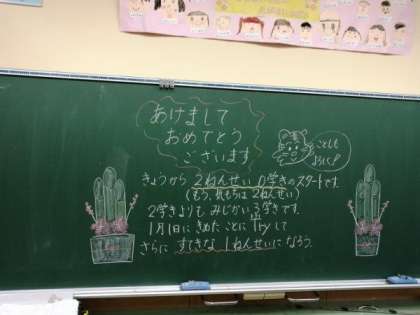 あけまして
おめでとう
ございます
ことしも
よろしく!
きょうから 2ねんせい 0学きのスタートです。
(もう、気もちは 2ねんせい)
2学きよりも みじかい 3学きです。
1月1日に きめた ことに トライして
さらに すてきな 1ねんせいに なろう。